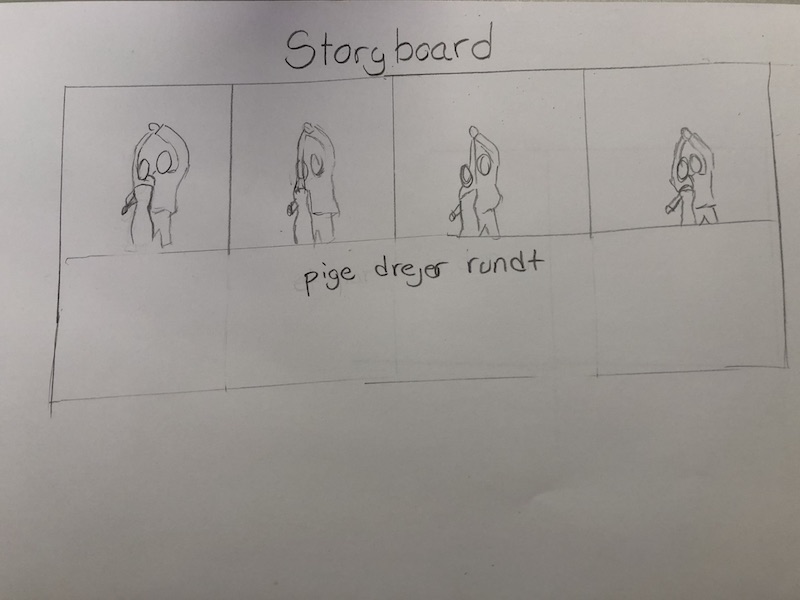 Storyboard
pige drejer rundt